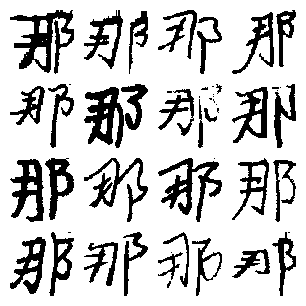 那那那那
那那那那
那那那那
那那那那